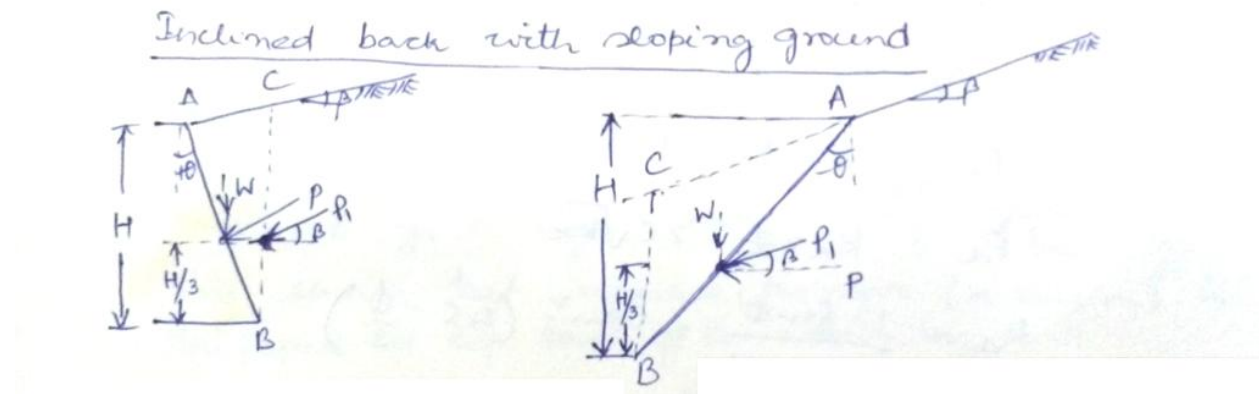 Inclined back with sloping ground
A C β
+θ
W P P1
H β
H/3
B
A β
C -θ
H W P1
β P
H/3
B